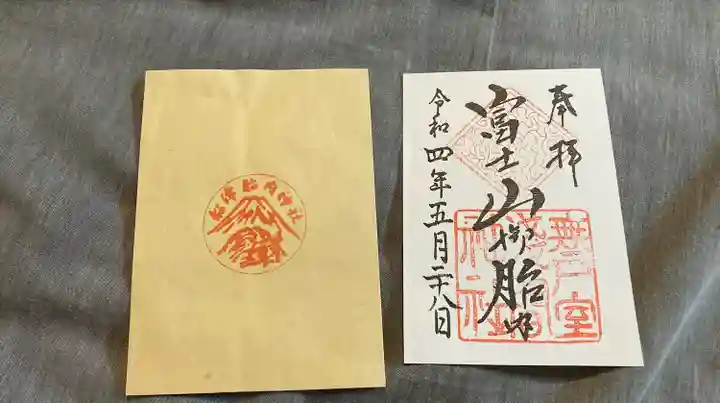 船津胎内神社
奉拝
富士山御胎内
令和四年五月二十八日
無戸室
浅間
神社